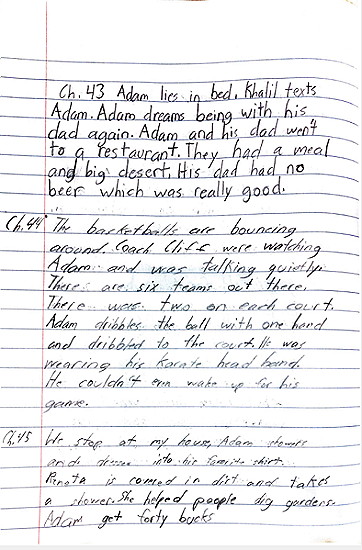 Ch. 43 Adam lies in bed. Khalil texts
Adam. Adam dreams being with his
dad again. Adam and his dad went
to a restaurant. They had a meal
and big desert. His dad had no
beer which was really good.
Ch. 44 The basketballs are bouncing
around. Coach Cliff were watching
Adam and was talking quietly.
There are six teams out there.
There were two on each court.
Adam dribbles the ball with one hand
and dribbled to the court. He was
wearing his Karate head band.
He couldn't even wake up for his
game.
Ch. 45 We stop at my house, Adam showers
and dresses into his favorite shirt.
Renata is covered in dirt and takes
a shower. She helped people dig gardens.
Adam get forty bucks